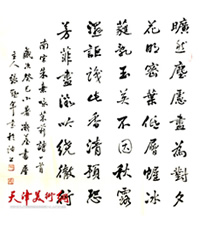 曠然塵慮盡為對夕
花明密葉低層幄冰
蕤亂玉英不因秋露
濕詎識此香清預恐
芳菲盡微吟繞砌行
南宋朱熹咏茉莉詩一首
歲次癸巳小暑書屋
主人張年書於沽上
天津美术网